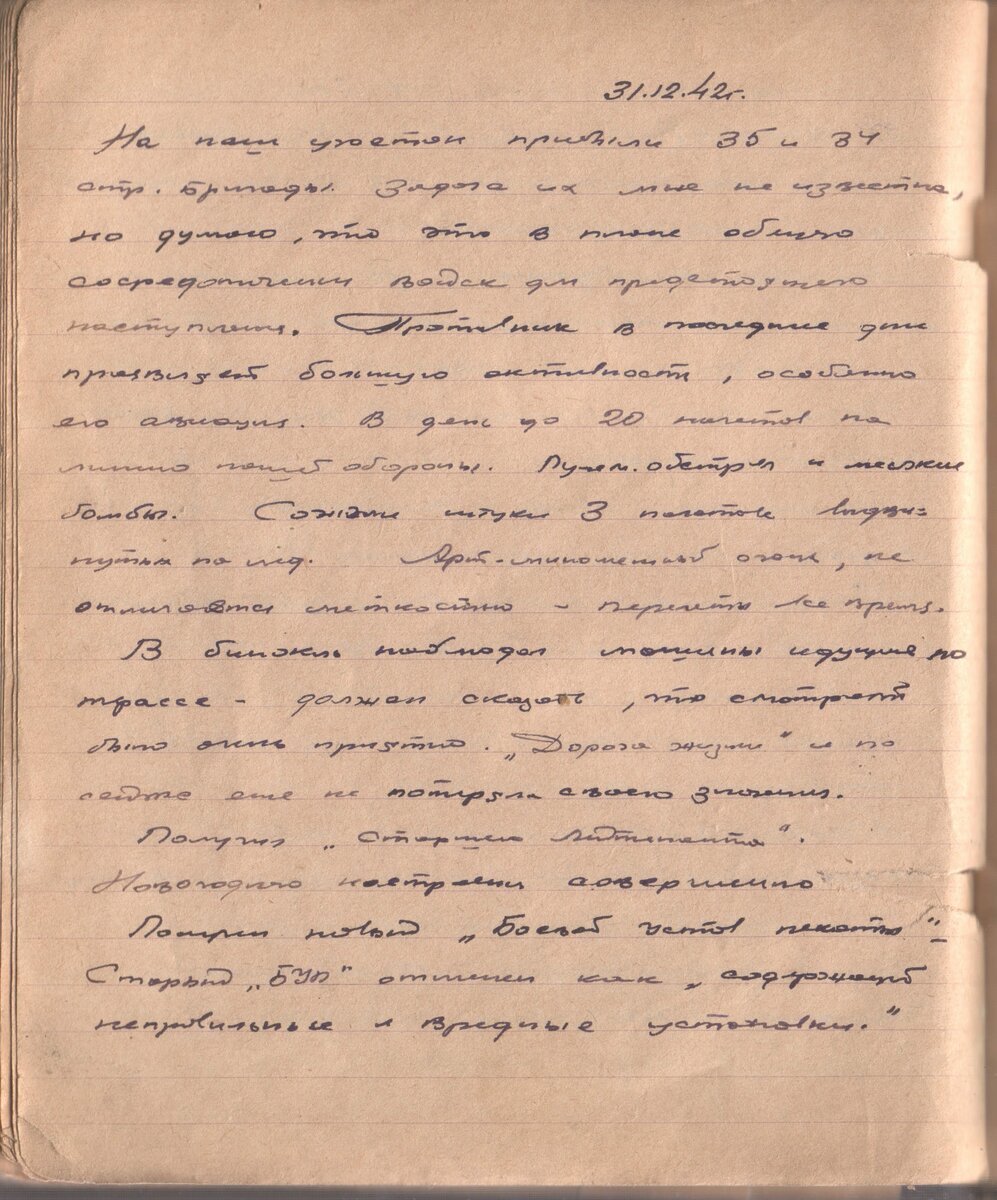 31.12.42г.
На наш участок прибыли 35 и 34
стр. бригады. Задача их мне не известна,
но думаю, что это в плане общего
сосредоточения войск для предстоящего
наступления. Противник в последние дни
проявляет большую активность, особенно
его авиация. В день до 20 налетов на
линию нашей обороны. Пулем. обстрел и мелкие
бомбы. Сожгли штуки 3 палаток выдви=
нутых на лед. Арт-минометный огонь, не
отличается меткостью - перелеты все время.
В бинокль наблюдал машины идущие по
трассе - должен сказать, что смотреть
было очень приятно. „Дорога жизни" и по
сейчас еще не потеряла своего значения.
Получил „Старшего лейтенанта".
Новогоднего настроения совершенно
Получен новый „Боевой устав пехоты"
Старый „БУП" отменен как „содержащий
неправильные и вредные установки."